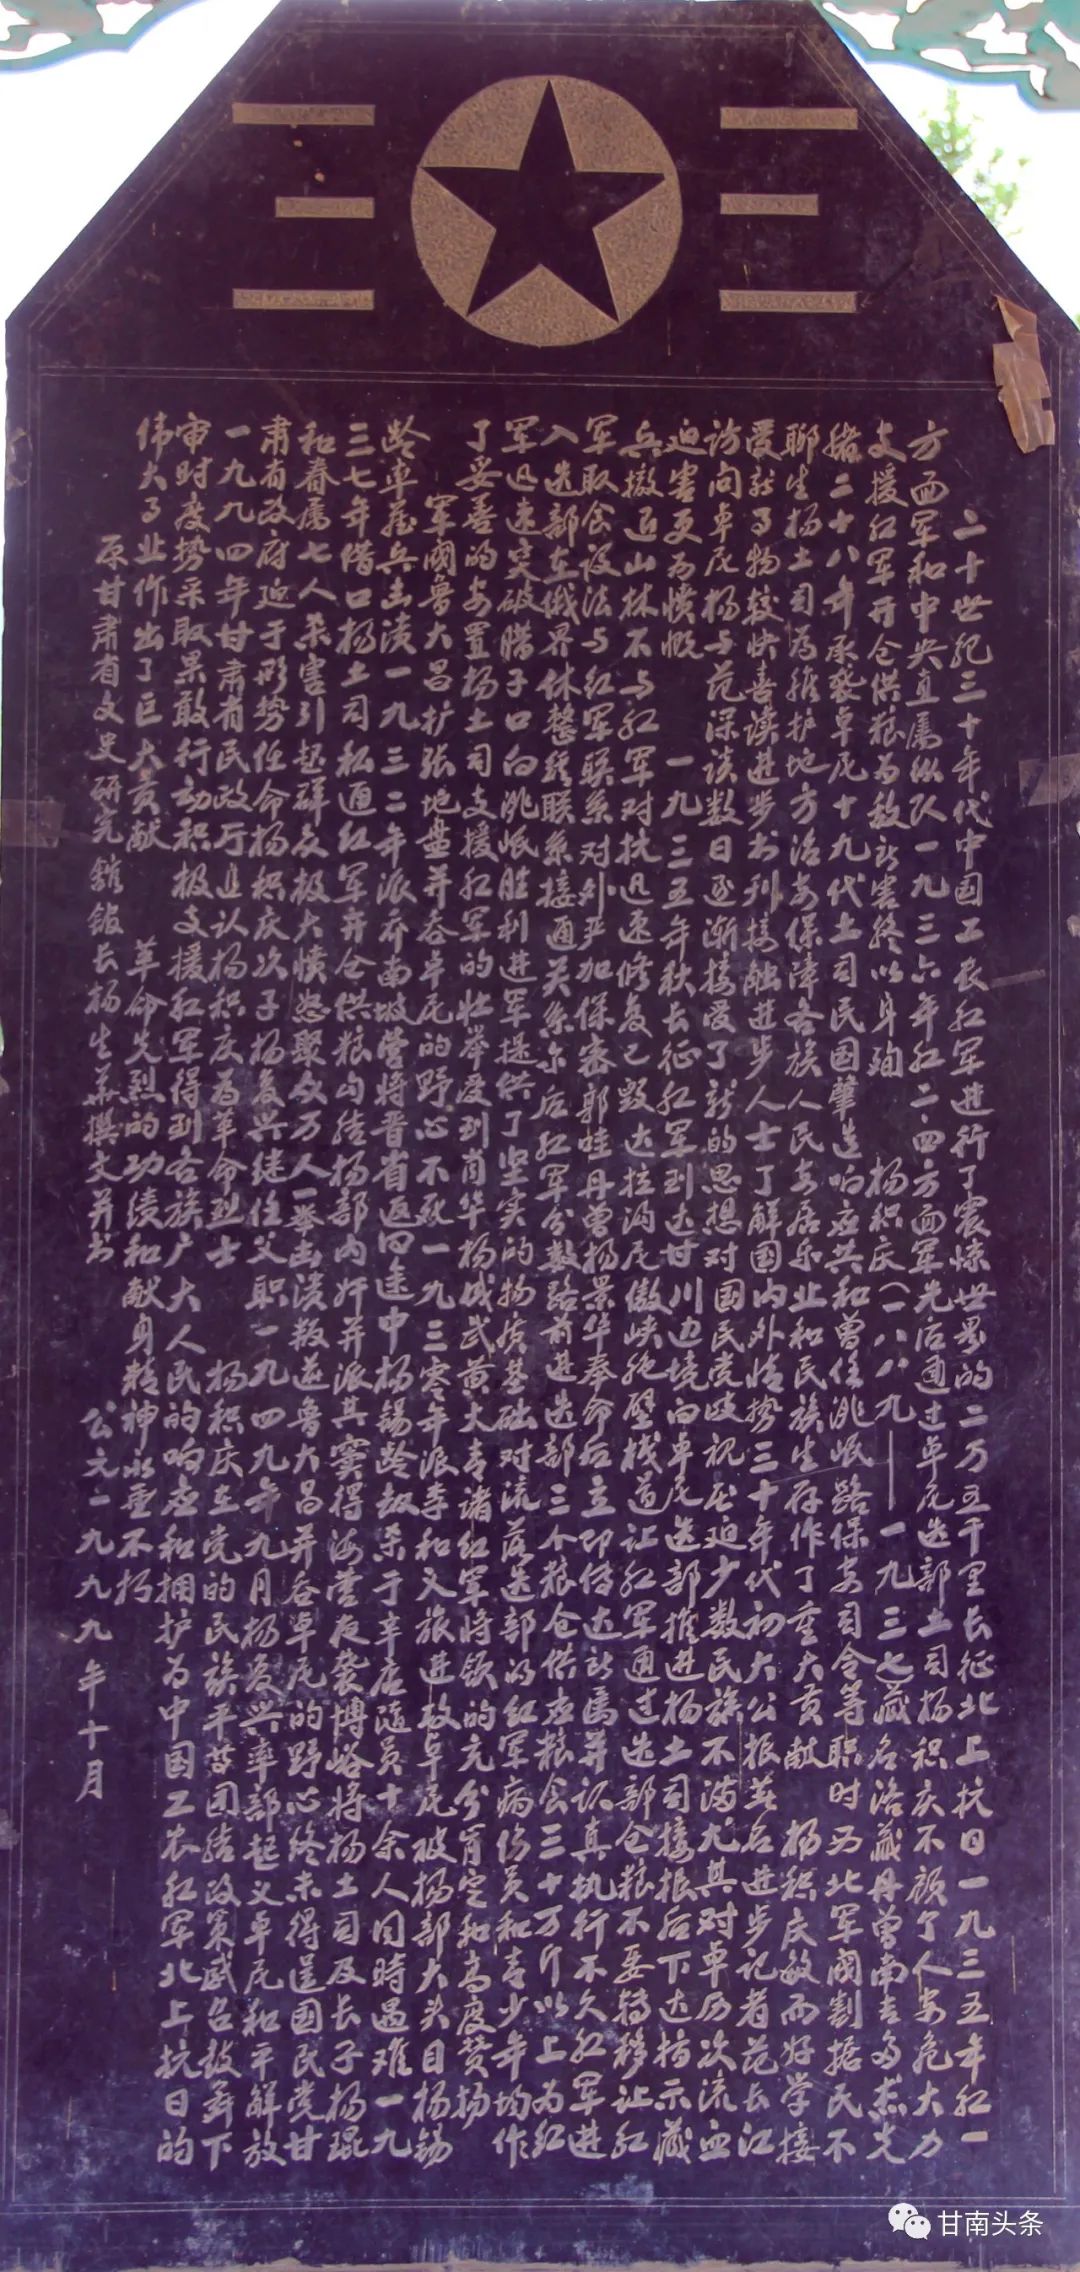 二十世纪三十年代中国工农红军进行了震惊世界的二万五千里长征北上抗日一九三五年红一
方面军和中央直属纵队一九三六年红二·四方面军先后通过卓尼迭部土司杨积庆不顾个人安危大力
支援红军开仓供粮为敌所害终以身殉 杨积庆(一八八九——一九三七藏名洛藏丹曾南杰
二十八年承袭卓尼十九代土司民国肇造响应共和曾任洮岷路保安司令等职时西北军阀割据民不
聊生杨土司为维护地方治安保障各族人民安居乐业和民族生存作了重大贡献 杨积庆敏而好学接
受新事物较快喜读进步书刊接触进步人士了解国内外情势三十年代初大公报著名进步记者范长江
访问卓尼杨与范深谈数日逐渐接受了新的思想对国民党歧视压迫少数民族不满尤其对卓历次流血
迫害更为愤慨 一九三五年秋长征红军到达甘川边境向卓尼迭部推进杨土司接报后下达指示藏
兵撤近山林不与红军对抗迅速修复已毁达拉沟尼傲峡绝壁栈道让红军通过迭部仓粮不要转移让红
军取食设法与红军联系对外严加保密郭哇丹曾杨景华奉命后立即传达所属并认真执行不久红军进
入迭部在俄界休整经联系接通关系尔后红军分数路前进迭部三个粮仓供应粮食三十万斤以上为红
军迅速突破腊子口向洮岷胜利进军提供了坚实的物质基础对流落迭部的红军病伤员和青少年均作
了妥善的安置杨土司支援红军的壮举受到肖华杨成武黄火青诸红军将领的充分肯定和高度赞扬
军阀鲁大昌扩张地盘并吞卓尼的野心不死一九三零年派李和义旅进攻卓尼被杨部大头目杨锡
龄率藏兵击溃一九三二年派乔南坡营将晋省返回途中杨锡龄劫杀于辛店随员十余人同時遇难一九
三七年借口杨土司私通红军开仓供粮勾结杨部内奸并派其窦得海营夜袭博峪将杨土司及长子杨琨
和眷属七人杀害引起群众极大愤怒聚众万人一举击溃叛逆鲁大昌并吞卓尼的野心终未得逞国民党甘
肃省政府迫于形势任命杨积庆次子杨复兴继任父职一九四九年九月杨复兴率部起义卓尼和平解放
一九九四年甘肃省民政厅追认杨积庆为革命烈士 杨积庆在党的民族平等团结政策感召鼓舞下
审时度势采取果敢行动积极支援红军得到各族广大人民的响应和拥护为中国工农红军北上抗日的
伟大事业作出了巨大贡献 革命先烈的功绩和献身精神永垂不朽
原甘肃省文史研究馆馆长杨生華撰文并书 公元一九九九年十月
甘南头条